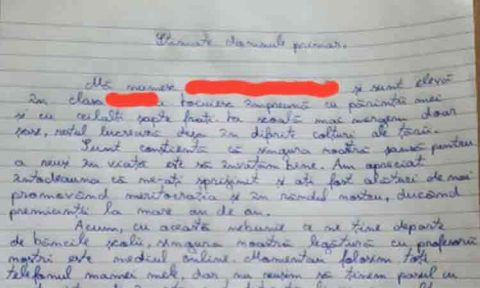 Stimate domnule primar,
Mă numesc și sunt elevă
în clasa locuiesc împreună cu părinții mei
și cu ceilalți șapte frați. La școală mai mergem doar
șase, restul lucrează deja în diferite colțuri ale țării.
Sunt conștientă că singura noastră șansă pentru
a reuși în viață este să învățăm bine. Am apreciat
întodeauna că ne-ați sprijinit și ați fost alături de noi
promovând meritocrația și în rândul nostru, ducând
premianții la mare an de an.
Acum, cu această nebunie ce ne ține departe
de băncile școlii, singura noastră legătură cu profesorii
noștri este mediul online. Momentan folosim toți
telefonul mamei mele, dar nu reușim să ținem pasul cu